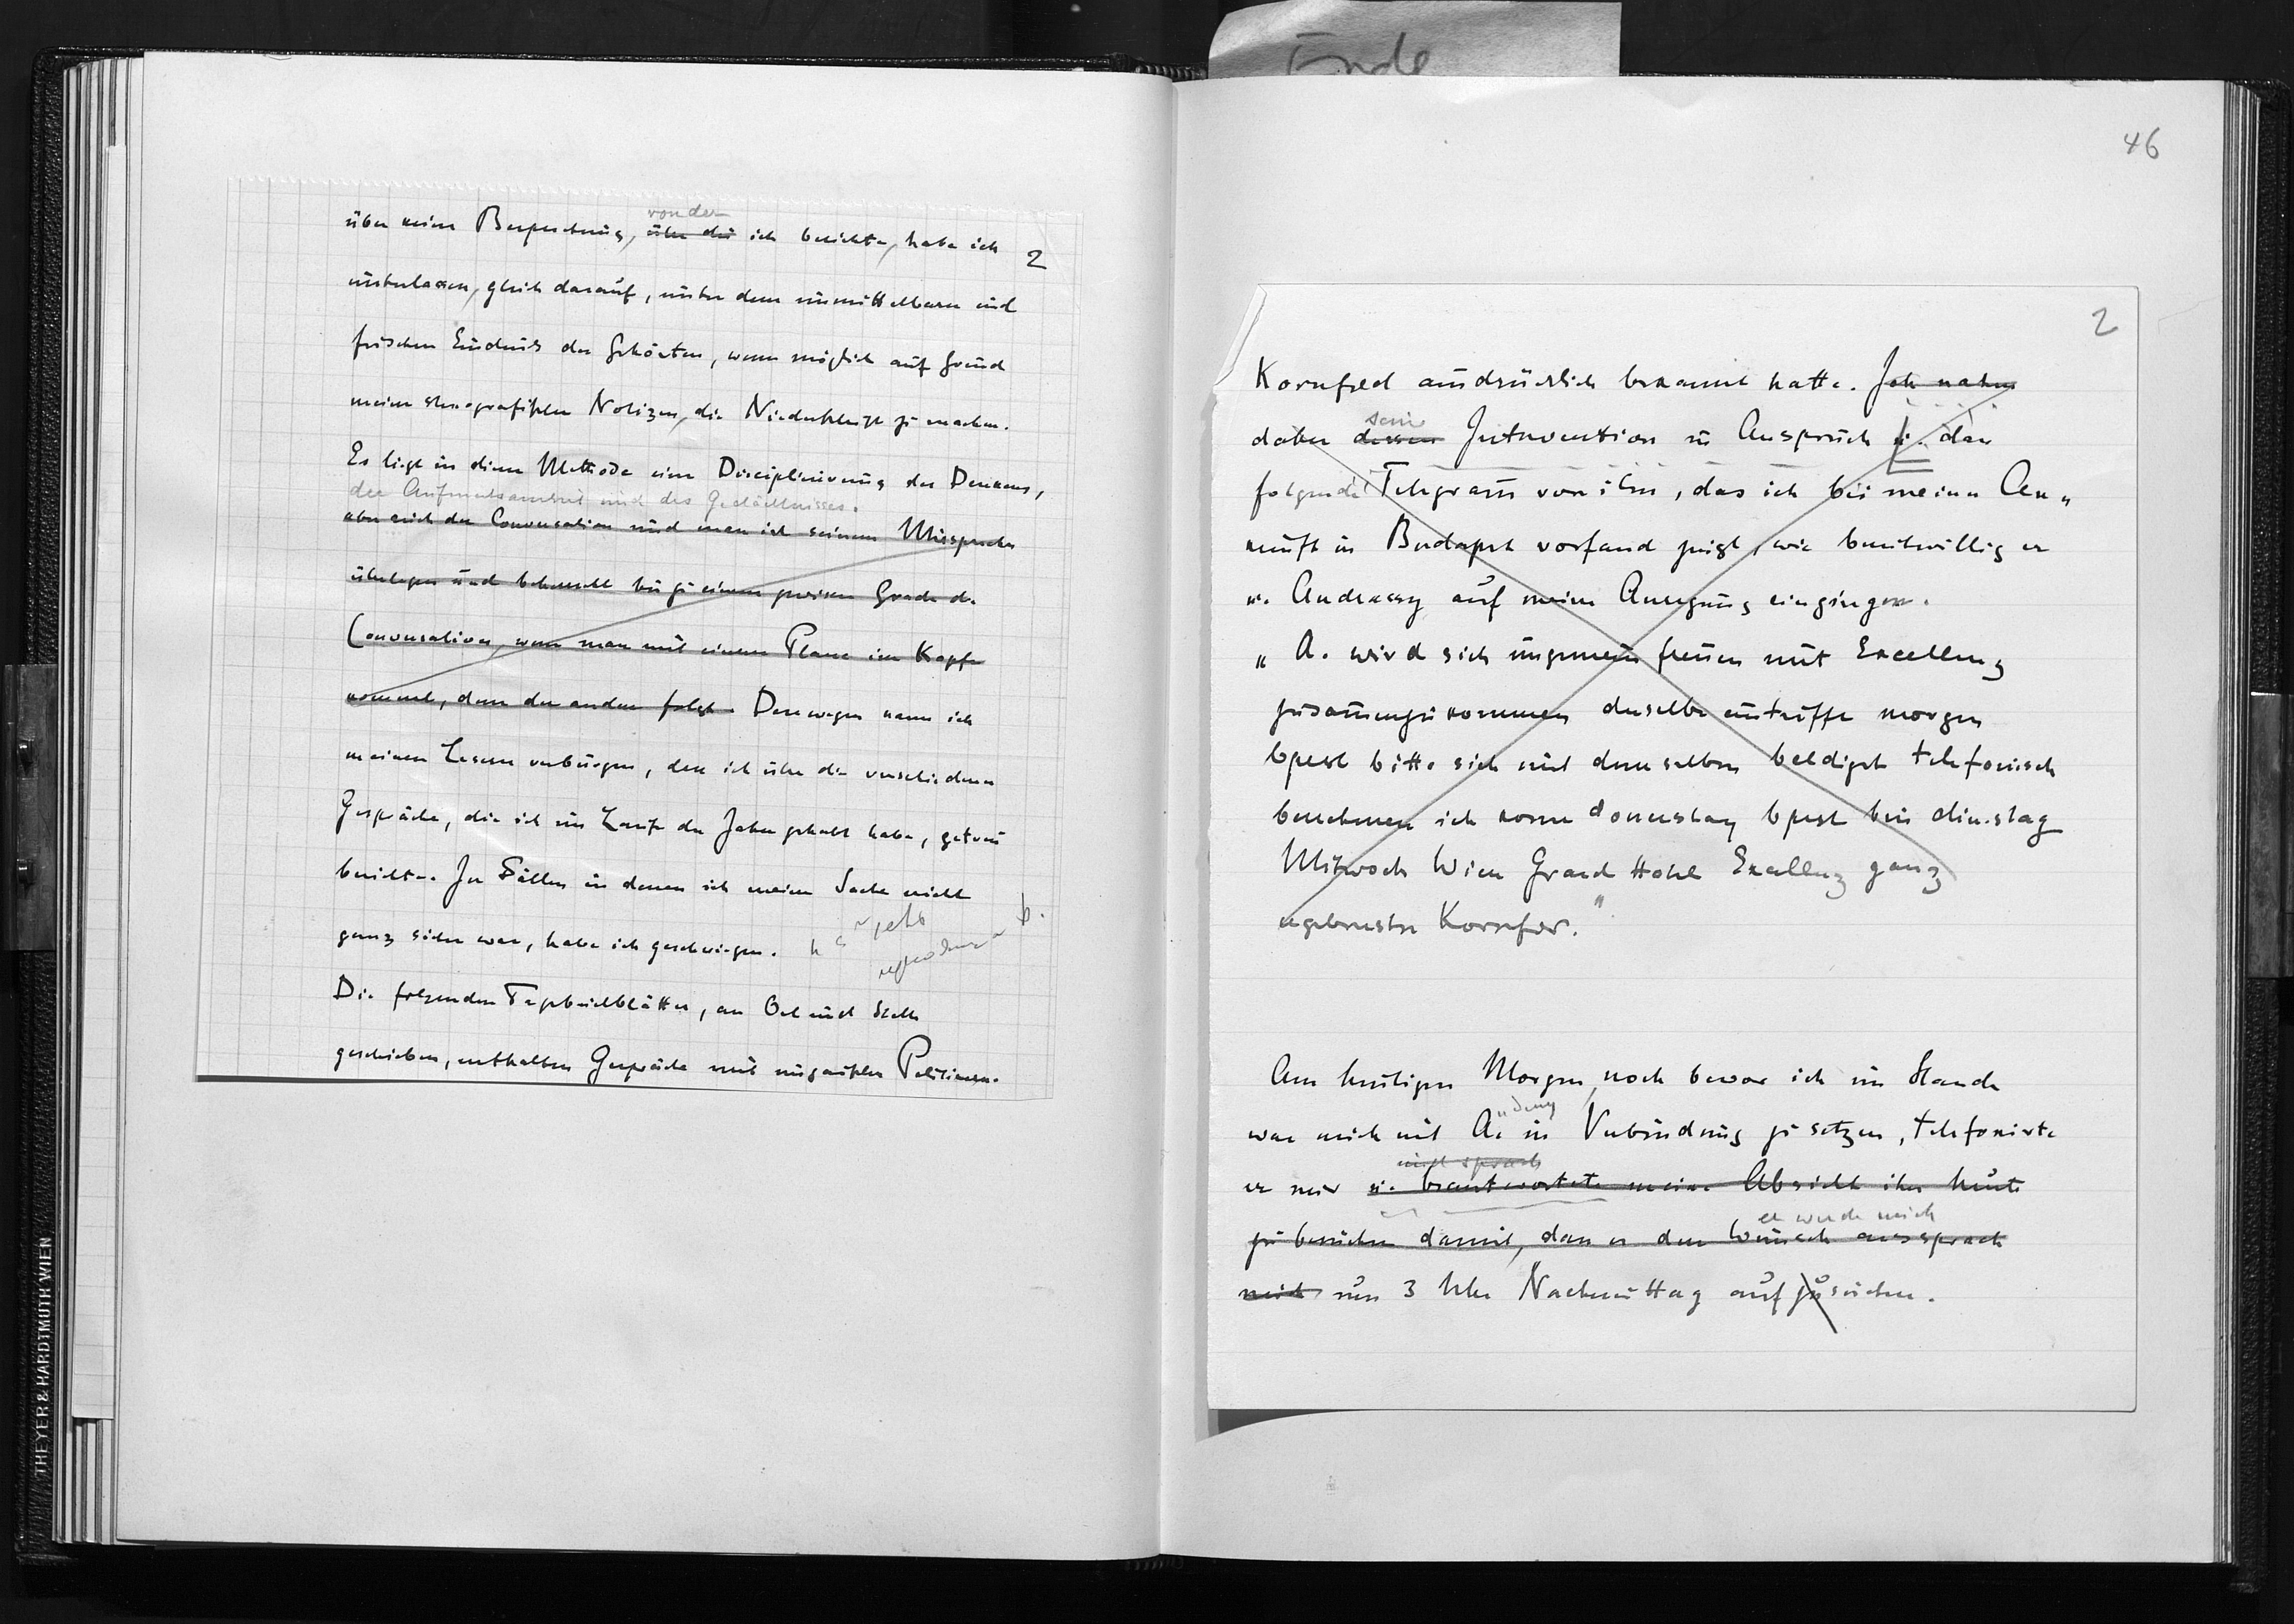 Ende
46
2
von der
über keine Besprechung, über die ich berichte, habe ich
unterlassen, gleich darauf, unter dem unmittelbaren und
frischen Eindruck des Gehörten, wenn möglich auf Grund
meiner stenografischen Notizen, die Niederschrift zu machen.
Es liegt in dieser Methode eine Disciplinirung des Denkens,
der Aufmerksamkeit und des Gedächtnisses.
aber auch der Conversation und man ist seinem Mitsprecher
überlegen und beherrscht bis zu einem gewissen Grade die
Conversation, wenn man mit einem Plane im Kopfe
kommt, dem der andere folgt. Deswegen kann ich
meinen Lesern verbürgen, dass ich über die verschiedenen
Gespräche, die ich im Laufe der Jahre gehabt habe, getreu
berichte. In Fällen in denen ich meiner Sache nicht
ganz sicher war, habe ich geschwiegen.
Die folgenden Tagebuchblätter, an Ort und Stelle
geschrieben, enthalten Gespräche mit ungarischen Politikern.
2
Kornfeld ausdrücklich bekannt hatte. Ich nahm
sein
daher dessen Intervention in Anspruch u. das
folgende Telegram von ihm, das ich bei meiner An„
kunft in Budapest vorfand zeigt, wie bereitwillig er
u. Andrassy auf meine Anregung eingingen.
„ A. wird sich ungemein freuen mit Excellenz
zusammenzukommen derselbe eintriffe morgen
bpest bitte sich mit demselben baldigst telefonisch
benehmen ich kome donnerstag bpest bin dinstag
Mitwoch Wien Grand Hotel Excellenz ganz
ergebenster Kornfeld."
Am heutigen Morgen, noch bevor ich im Stande
war mich mit A. in Verbindung zu setzen, telefonirte
und sprach
er mir u. beantwortete meine Absicht ihn heute
er werde mich
zu besuchen damit, dass er den Wunsch aussprach
mich um 3 Uhr Nachmittag aufzusuchen.